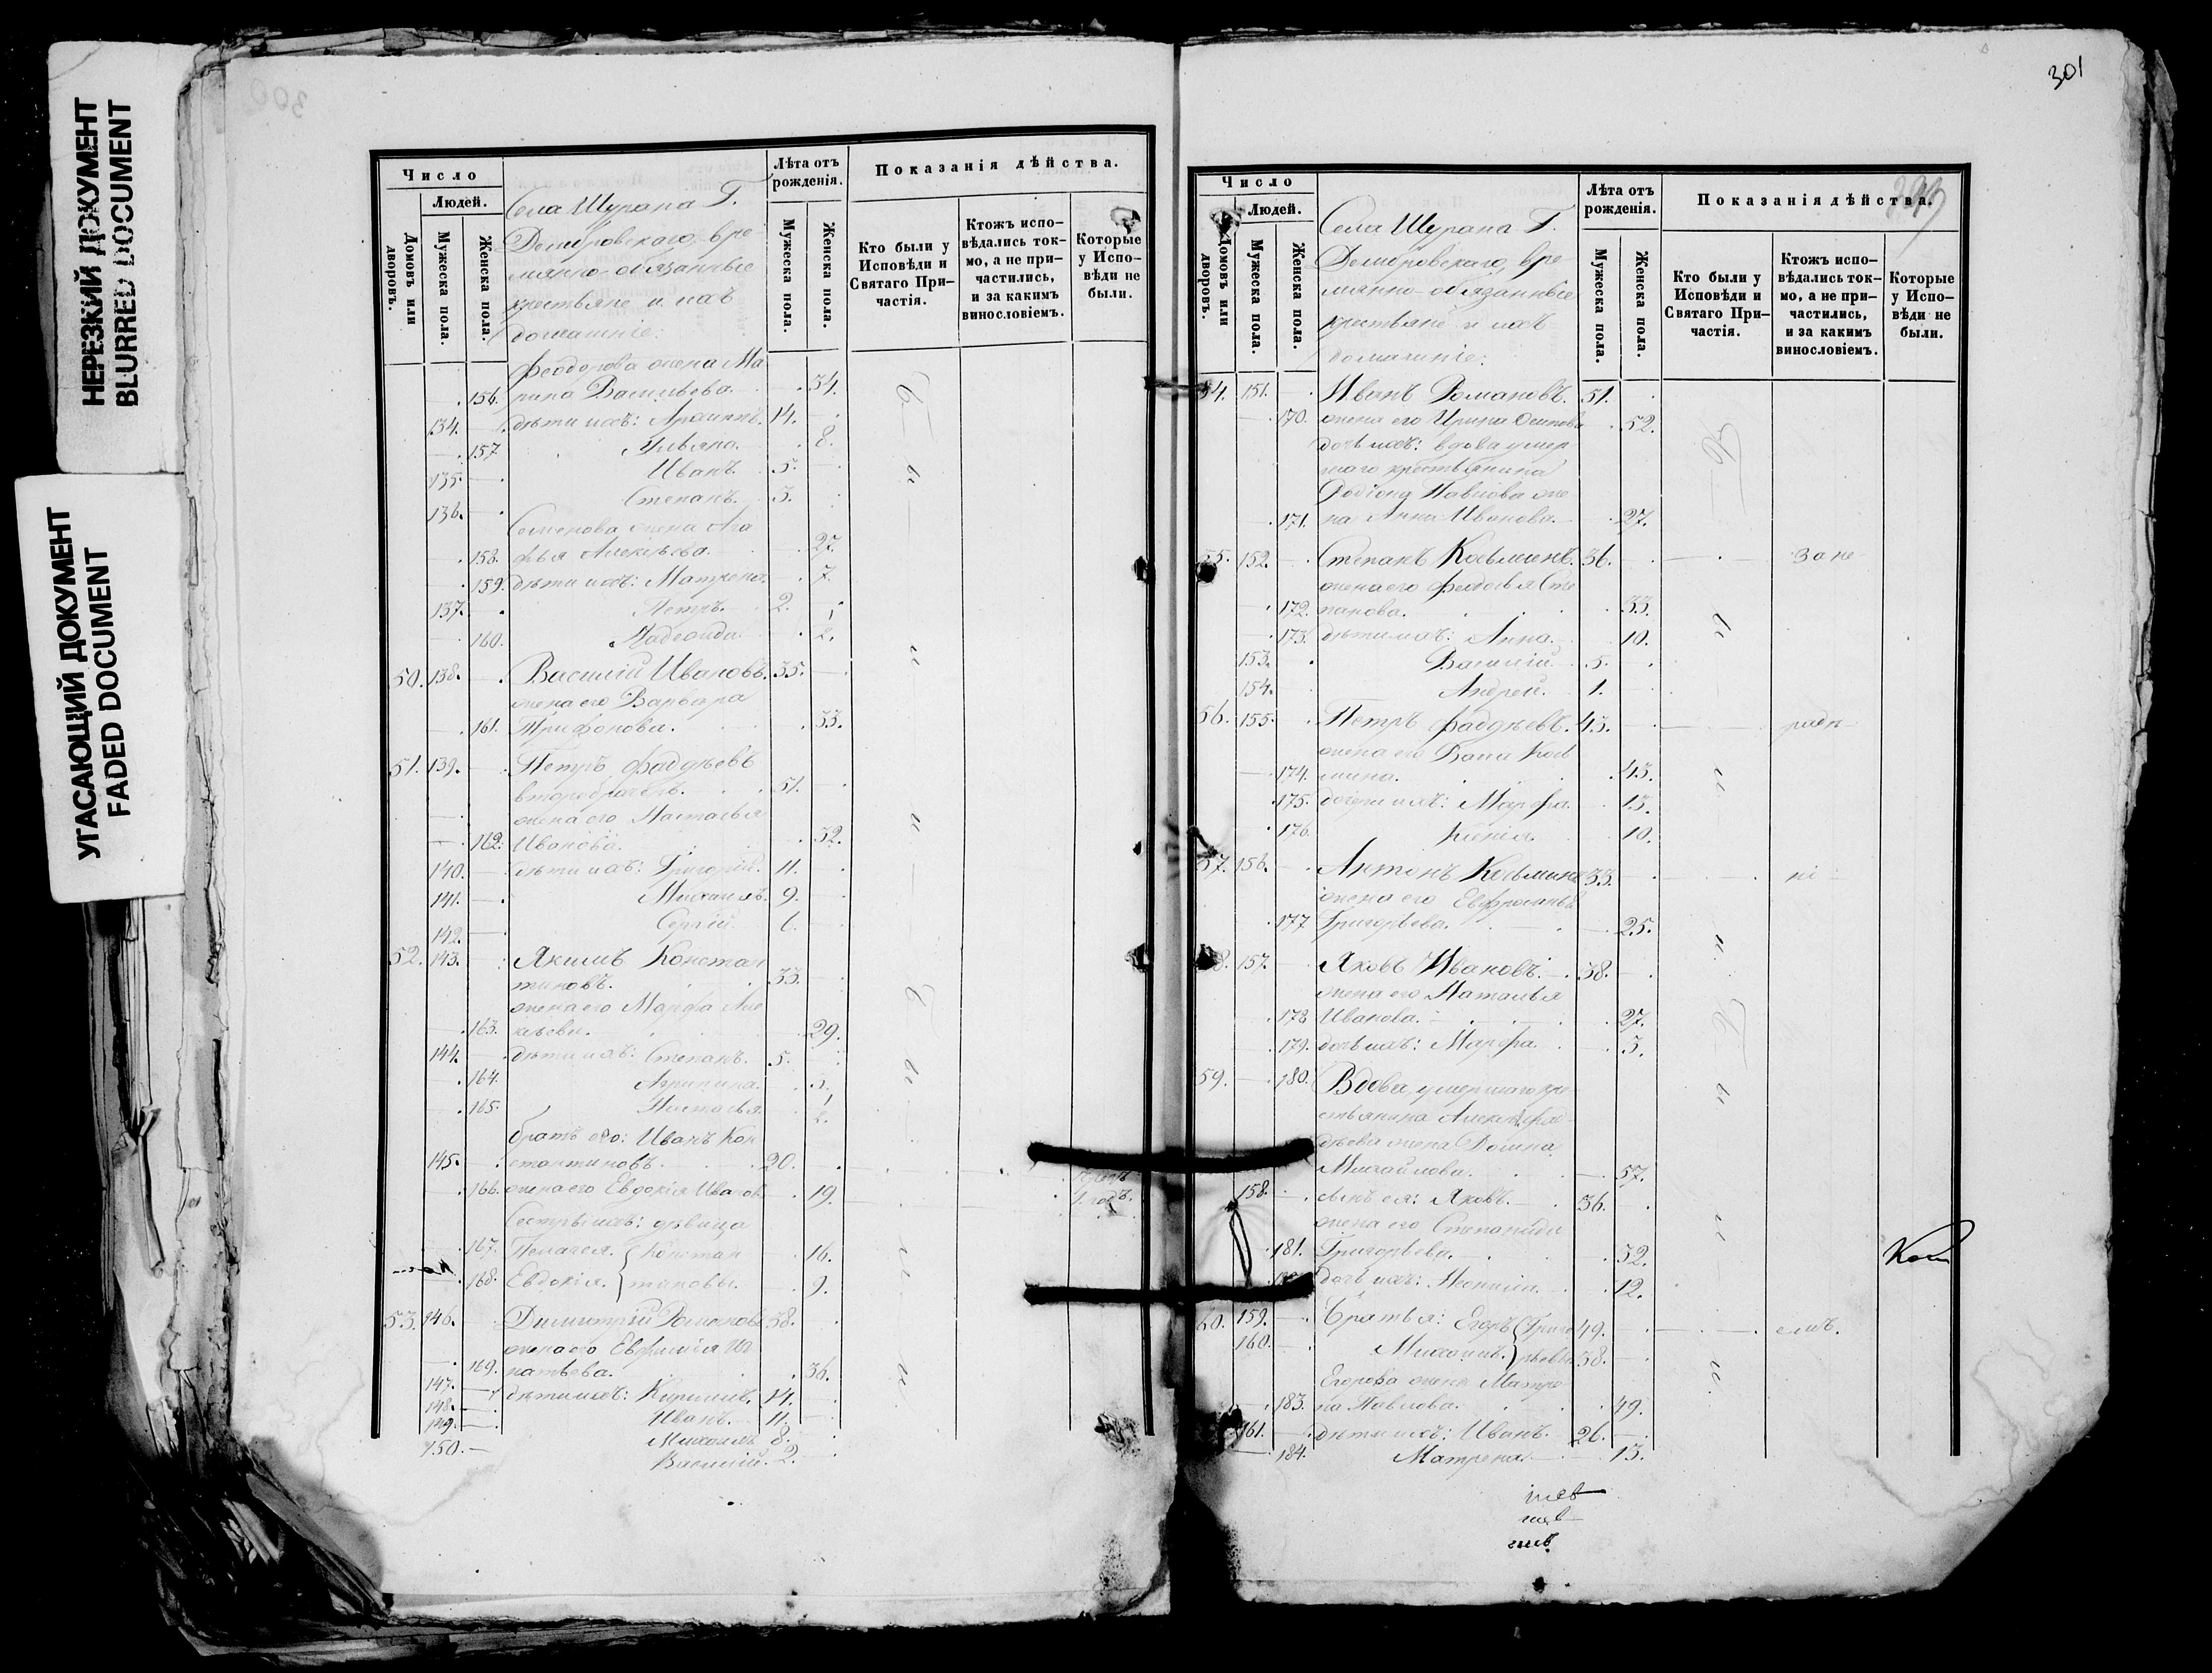 НЕРЕЗКИЙ ДОКУМЕНТ
BLURRED DOCUMENT
УГАСАЮЩИЙ ДОКУМЕНТ
FADED DOCUMENT
300
Число
Людей.
Домовъ или дворовъ.
Мужеска пола.
Женска пола.
Села Шурана Г.
Демировскаго, вре-
мянно-обязанные
крестьяне и ихъ
домашніе:
Лѣта отъ рожденія.
Мужеска пола.
Женска пола.
Показанія дѣйства.
Кто были у Исповѣди и Святаго При-частія.
Ктожъ испо-вѣдались ток-мо, а не при-частились, и за какимъ винословіемъ.
Которые у Испо-вѣди не были.
Феодорова жена Ма
156. рина Васильева. 34.
134. дѣти ихъ: 14.
157 Ульяна. 8.
135. Иванъ. 5.
136. Степанъ. 3.
Семенова жена Ага
158. фья Алексѣева. 27.
159. дѣти ихъ: Матрена. 7.
137. Петръ. 2.
160. Надежда.
50. 138. Василій Ивановъ. 35.
жена его Варвара
161. Трифонова. 33.
51. 139. Петръ Фаддѣевъ
второбрачн. 51.
жена его Настасья
162. Иванова. 32.
140. дѣти ихъ: Григорій. 11.
141. Михаилъ. 9.
142. Сергій. 6.
52. 143. Якимъ Констан
тиновъ. 33.
жена его Марфа Але
163. ксѣева. 29.
144. дѣти ихъ: Степанъ. 5.
164. Агрипина. 3.
165. Настасья.
братъ его: Иванъ Кон
145. стантиновъ. 20.
166. жена его Евдокія Иванов. 19.
Сестры ихъ: дѣвица
167. Пелагея. Констан 16.
168. Евдокія. тиновы. 9.
53. 146. Димитрій Романовъ 38.
жена его Евфимія Иг
169. натьева. 36.
147. дѣти ихъ: Кириллъ. 14.
148. Иванъ. 11.
149. Михаилъ 8.
150. Василій. 2.
301
Число
Людей.
Домовъ или дворовъ.
Мужеска пола.
Женска пола.
Села Шурана Г.
Демировскаго, вре
мянно-обязанные
крестьяне и ихъ
домашніе:
Лѣта отъ рожденія.
Мужеска пола.
Женска пола.
Показанія дѣйства.
Кто были у Исповѣди и Святаго При-частія.
Ктожъ испо-вѣдались ток-мо, а не при-частились, и за какимъ винословіемъ.
Которые у Испо-вѣди не были.
54. 151. Иванъ Романовъ. 51.
170. жена его Ирина Осипова 52.
дочь ихъ: вдова умер
шаго крестьянина
Родіона Павлова же
171. на Анна Иванова. 27.
55. 152. Степанъ Козьминъ. 36. за не
жена его Феодосья Сте
172. панова. 33.
173. дѣти ихъ: Анна. 10.
153. Василій. 5.
154. Андрей. 1.
56. 155. Петръ Фаддѣевъ. 43. радѣ
жена его Козь
174. мина. 43.
175. дочери ихъ: Марфа. 13.
176. Ксенія. 10.
57. 156. Антонъ Козьминъ 33. ні
жена его Евфросинья
177 Григорьева. 25.
58. 157. Яковъ Ивановъ. 38.
жена его Наталья
178 Иванова. 27.
179. дочь ихъ: Марфа. 3.
59. 180. Вдова, умершаго кре
стьянина Алексѣя Фад
дѣева жена Домна
Михайлова. 57.
158. сынъ ея: Яковъ. 36.
жена его Степанида
181. Григорьева. 32.
дочь ихъ: 12.
60. 159. Братья: Егоръ Григо 49. емъ.
160. Михаилъ. рьевы 38.
Егорова жена Матре
183. на Павлова. 49.
161. дѣти ихъ: Иванъ. 26.
184. Матрена. 13.